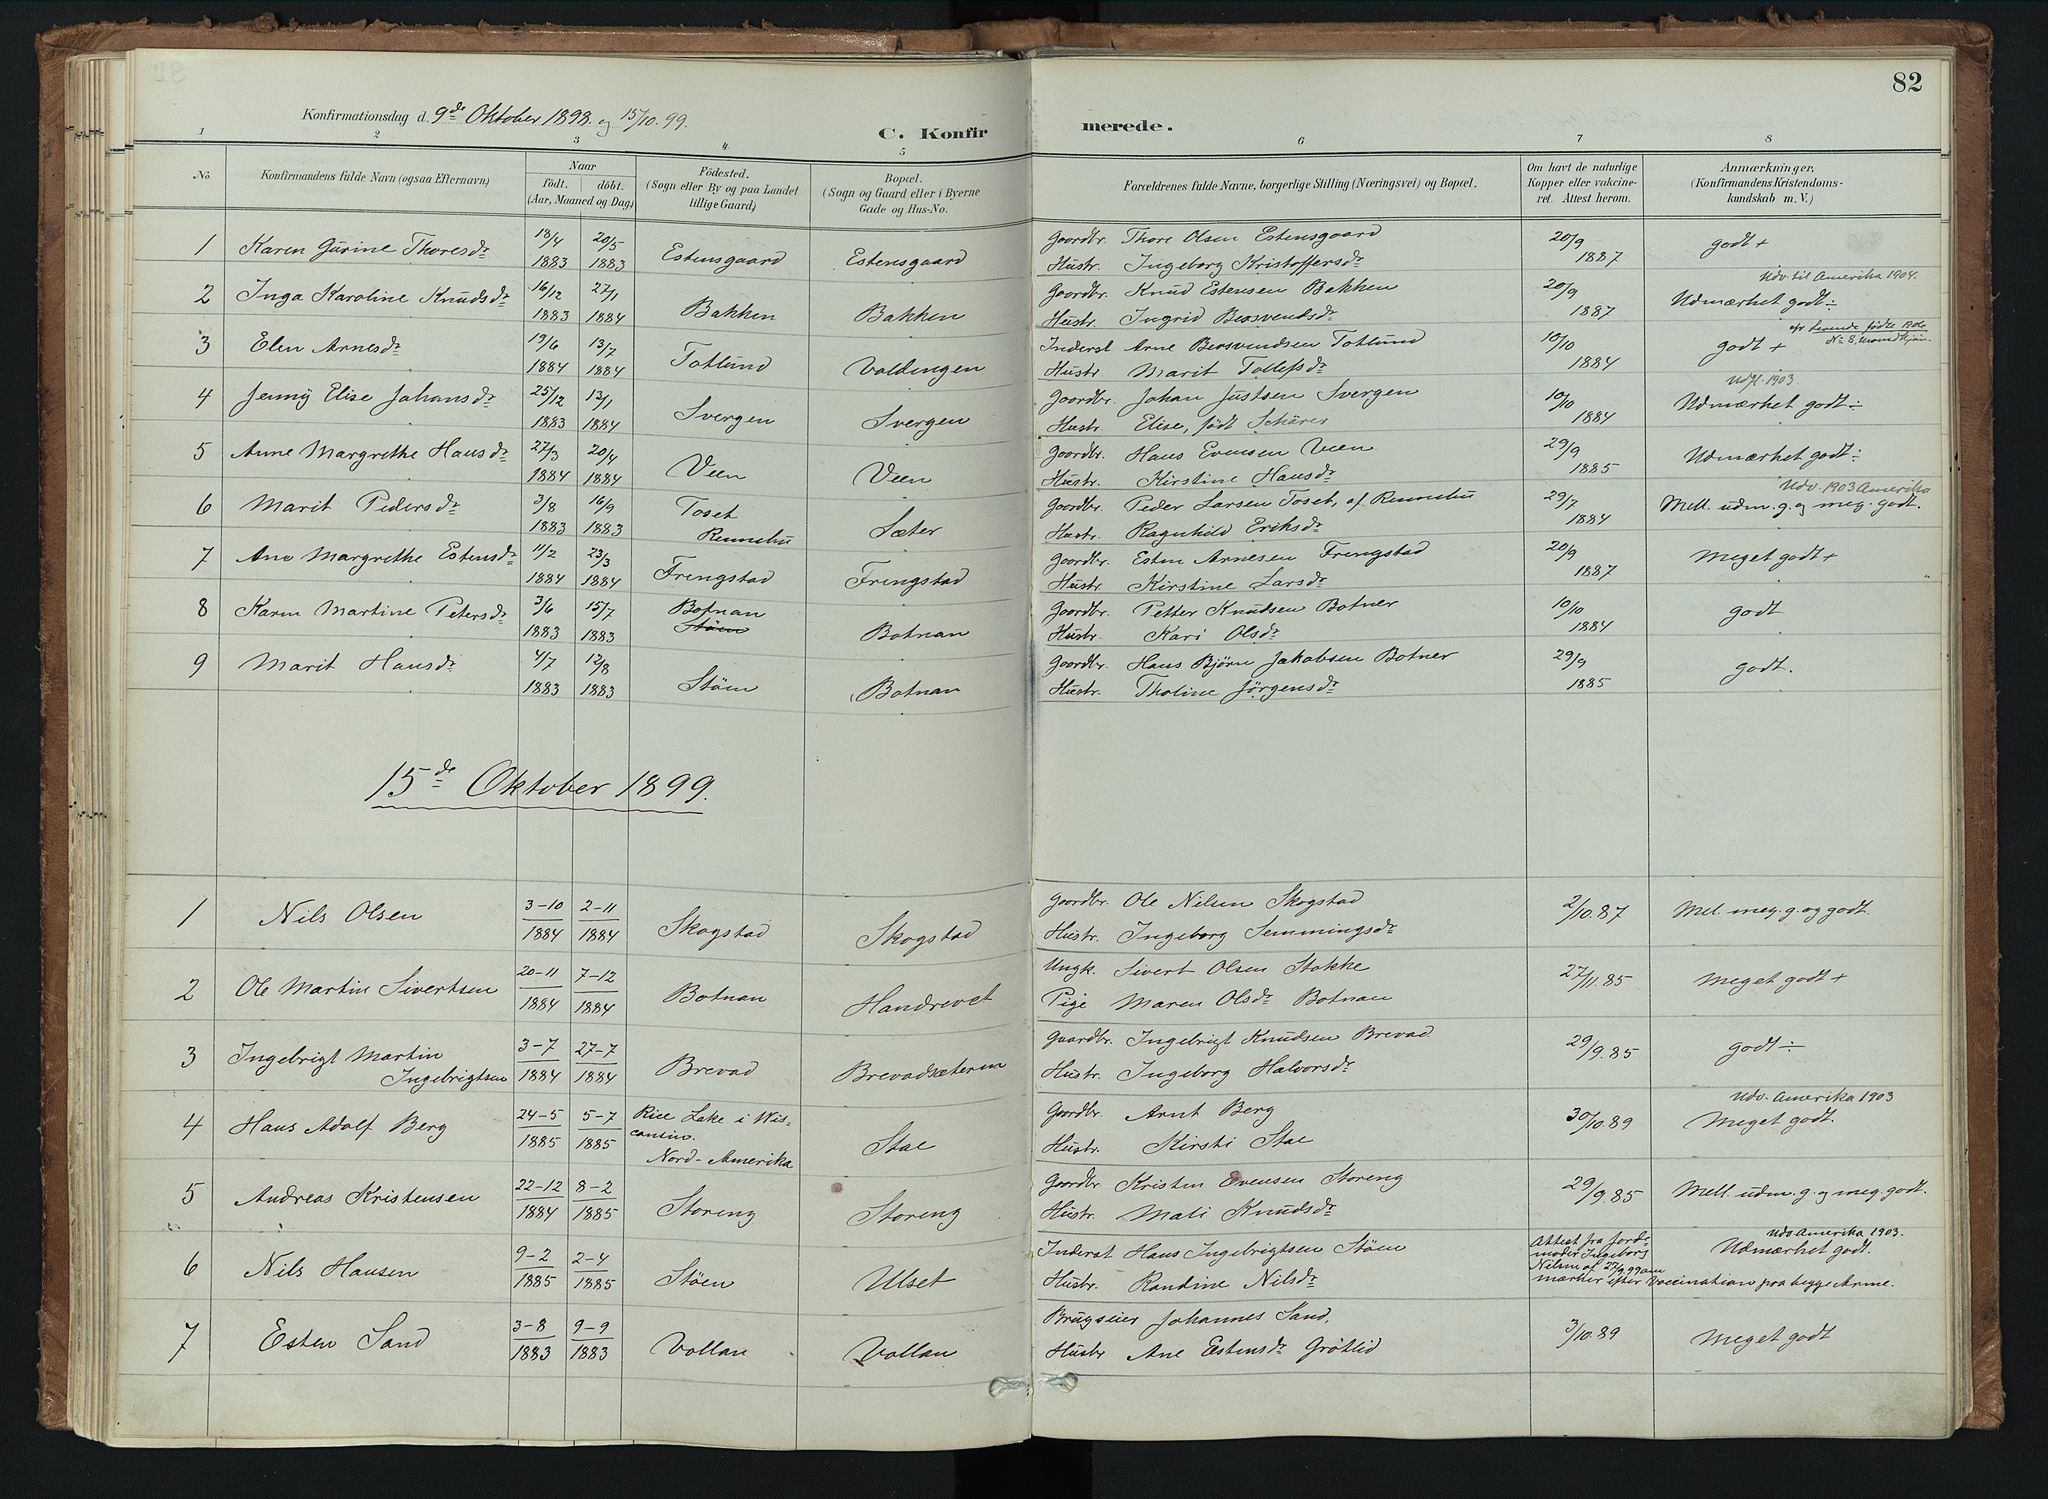 82
Konfirmationsdag d. 9de Oktober 1898. og 15/10.99.
C. Konfirmerede.
1 2 3 4 5 6 7 8
No. Konfirmandens fulde Navn (ogsaa Efternavn) Naar født. døbt. (Aar, Maaned og Dag) Fødested. (Sogn eller By og paa Landet tillige Gaard) Bopæl. (Sogn og Gaard eller i Byerne Gade og Hus-No. Forældrenes fulde Navne, borgerlige Stilling (Næringsvei) og Bopæl. Om havt de naturlige Kopper eller vakcineret. Attest herom. Anmærkninger. (Konfirmandens Kristendomskundskab m. V.)
1 Karen Gurine Thoresdr 13/4 1883 20/5 1883 Estensgaard Estensgaard Gaardbr. Thore Olsen Estensgaard
Hustr. Ingeborg Kristoffersdr 20/9 1887 godt +
2 Inga Karoline Knudsdr 16/12 1883 27/1 1884 Bakken Bakken Gaardbr. Knud Estensen Bakken
Hustr. Ingrid Bersvendsdr 20/9 1887 Udv. til Amerika 1904.
Udmærket godt ÷
3 Elen Arnesdr 19/6 1884 13/7 1884 Totlund Valdingen Inderst Arne Bersvendsen Totlund
Hustr. Marit Tollefsdr 10/10 1884 godt + cfr levende fødte 1906 No 8,
4 Jenny Elise Johansdr 25/12 1883 13/1 1884 Svergen Svergen Gaardbr. Johan Justsen Svergen
Hustr. Elise, født Schårer 10/10 1884 Udfl. 1903.
Udmærket godt ÷
5 Anne Margrethe Hansdr 27/3 1884 20/4 1884 Veen Veen Gaardbr. Hans Evensen Veen
Hustr. Kirstine Hansdr 29/9 1885 Udmærket godt ÷
6 Marit Pedersdr 3/8 1883 16/9 1883 Toset Rennebu Sæter Gaardbr. Peder Larsen Toset, af Rennebu
Hustr. Ragnhild Eriksdr 29/7 1884 Udv. 1903 Amerika
Mell. udm. g. og meg. godt.
7 Ane Margrethe Estensdr 11/2 1884 23/3 1884 Frengstad Frengstad Gaardbr. Esten Arnesen Frengstad
Hustr. Kirstine Larsdr 20/9 1887 Meget godt +
8 Karen Martine Petersdr 3/6 1883 15/7 1883 Botnan Støen Botnan Gaardbr. Petter Knudsen Botner
Hustr. Kari Olsdr 10/10 1884 godt
9 Marit Hansdr 4/7 1883 12/8 1883 Støen Botnan Gaardbr. Hans Bjørn Jakobsen Botner
Hustr. Tholine Jørgensdr 29/9 1885 godt.
15de Oktober 1899.
1 Nils Olsen 3-10 1884 2-11 1884 Skogstad Skogstad Gaardbr. Ole Nilsen Skogstad
Hustr. Ingeborg Semmingsdr 2/10.87 Mel. meg. g. og godt.
2 Ole Martin Sivertsen 20-11 1884 7-12 1884 Botnan Handrevet Ungk. Sivert Olsen Stokke
Pige Maren Olsdr Botnan 27/11.85 Meget godt +
3 Ingebrigt Martin Ingebrigtsen 3-7 1884 27-7 1884 Brevad Brevadsæteren Gaardbr. Ingebrigt Knudsen Brevad
Hustr. Ingeborg Halvorsdr 29/9.85 godt ÷
4 Hans Adolf Berg 24-5 1885 5-7 1885 Rice Lake i Wisconsin. Nord-Amerika Stae Gaardbr. Arnt Berg
Hustr. Kirsti Stae 30/10.89 Udv. Amerika 1903
Meget godt.
5 Andreas Kristensen 22-12 1884 8-2 1885 Storeng Storeng Gaardbr. Kristen Evensen Storeng
Hustr. Mali Knudsdr 29/9.85 Mell. udm. g. og meg. godt.
6 Nils Hansen 9-2 1885 2-4 1885 Støen Ulset Inderst Hans Ingebrigtsen Støen
Hustr. Randine Nilsdr Attest fra Jordmoder Ingebors Nilsen af 27/9.99 om mærker efter Vaccination paa begge Arme. Udv Amerika 1903.
Udmærket godt.
7 Esten Sand 3-8 1883 9-9 1883 Vollan Vollan Brugseier Johannes Sand.
Hustr Ane Estensdr Grøtlid 3/10.89 Meget godt